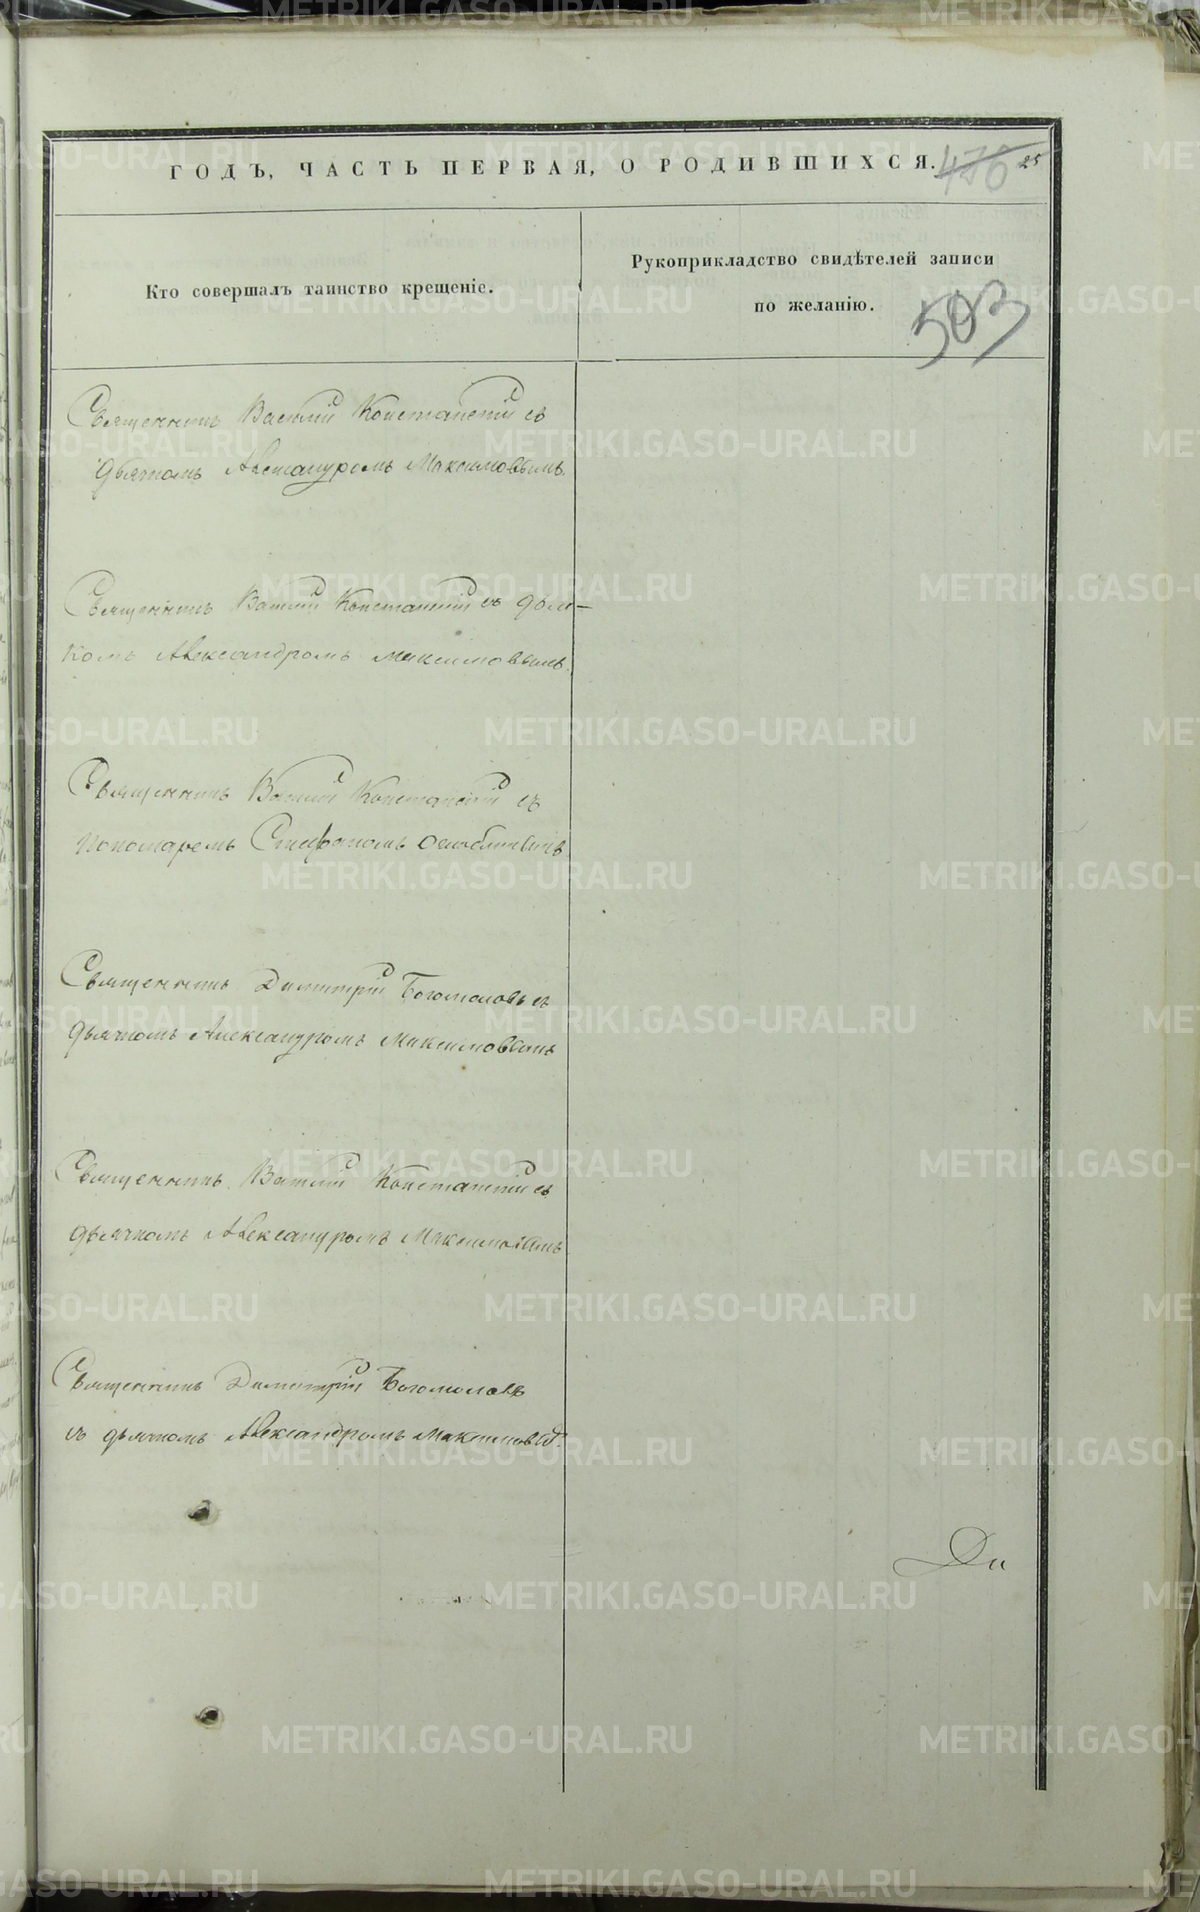 ГОДЪ, ЧАСТЬ ПЕРВАЯ, О РОДИВШИХСЯ. 25
Кто совершалъ таинство крещенія.
Рукоприкладство свидѣтелей записи
по желанію.
503
Священникъ Василій Констанскій съ
дьячкомъ Александромъ Максимовымъ.
Священникъ Василій Констанскій съ дьяч-
комъ Александромъ Максимовымъ.
Священникъ Василій Констанскій съ
пономаремъ Стефаномъ
Священникъ Димитрій Богомоловъ съ
дьячкомъ Александромъ Максимовымъ
Священникъ Василій Констанскій съ
дьячкомъ Александромъ Максимовымъ
Священникъ Димитрій Богомоловъ
съ дьячкомъ Александромъ Максимовы.
METRIKI.GASO-URAL.RU